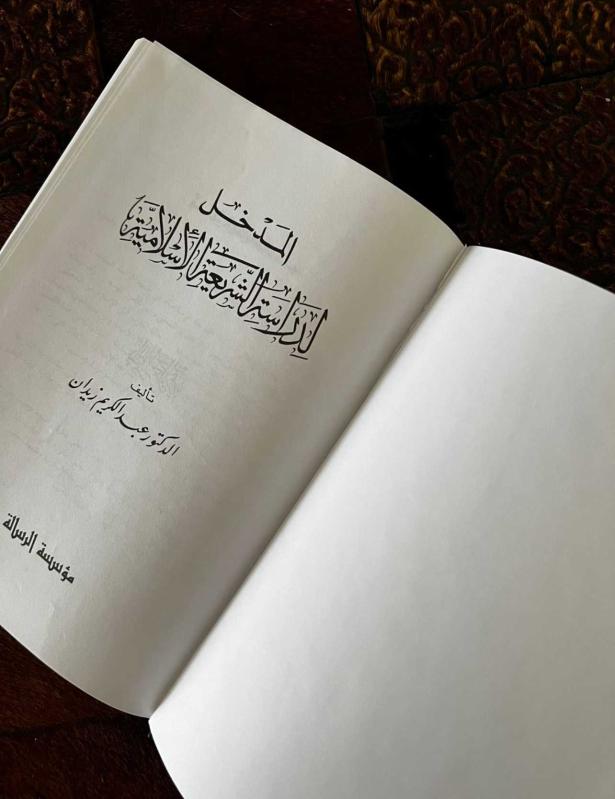 المَدْخَل
لِدِرَاسَةِ الشَّرِيعَةِ الإِسْلَامِيَّةِ
تأليف
الدكتور عبد الكريم زيدان
مؤسسة الرسالة